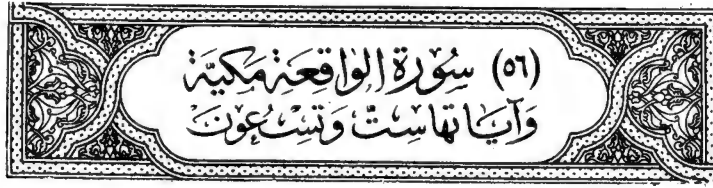 (٥٦) سُورَة الوَاقِعَة مَكِيَّة
وَآيَاتهَا سِتٌّ وَتِسْعُونَ